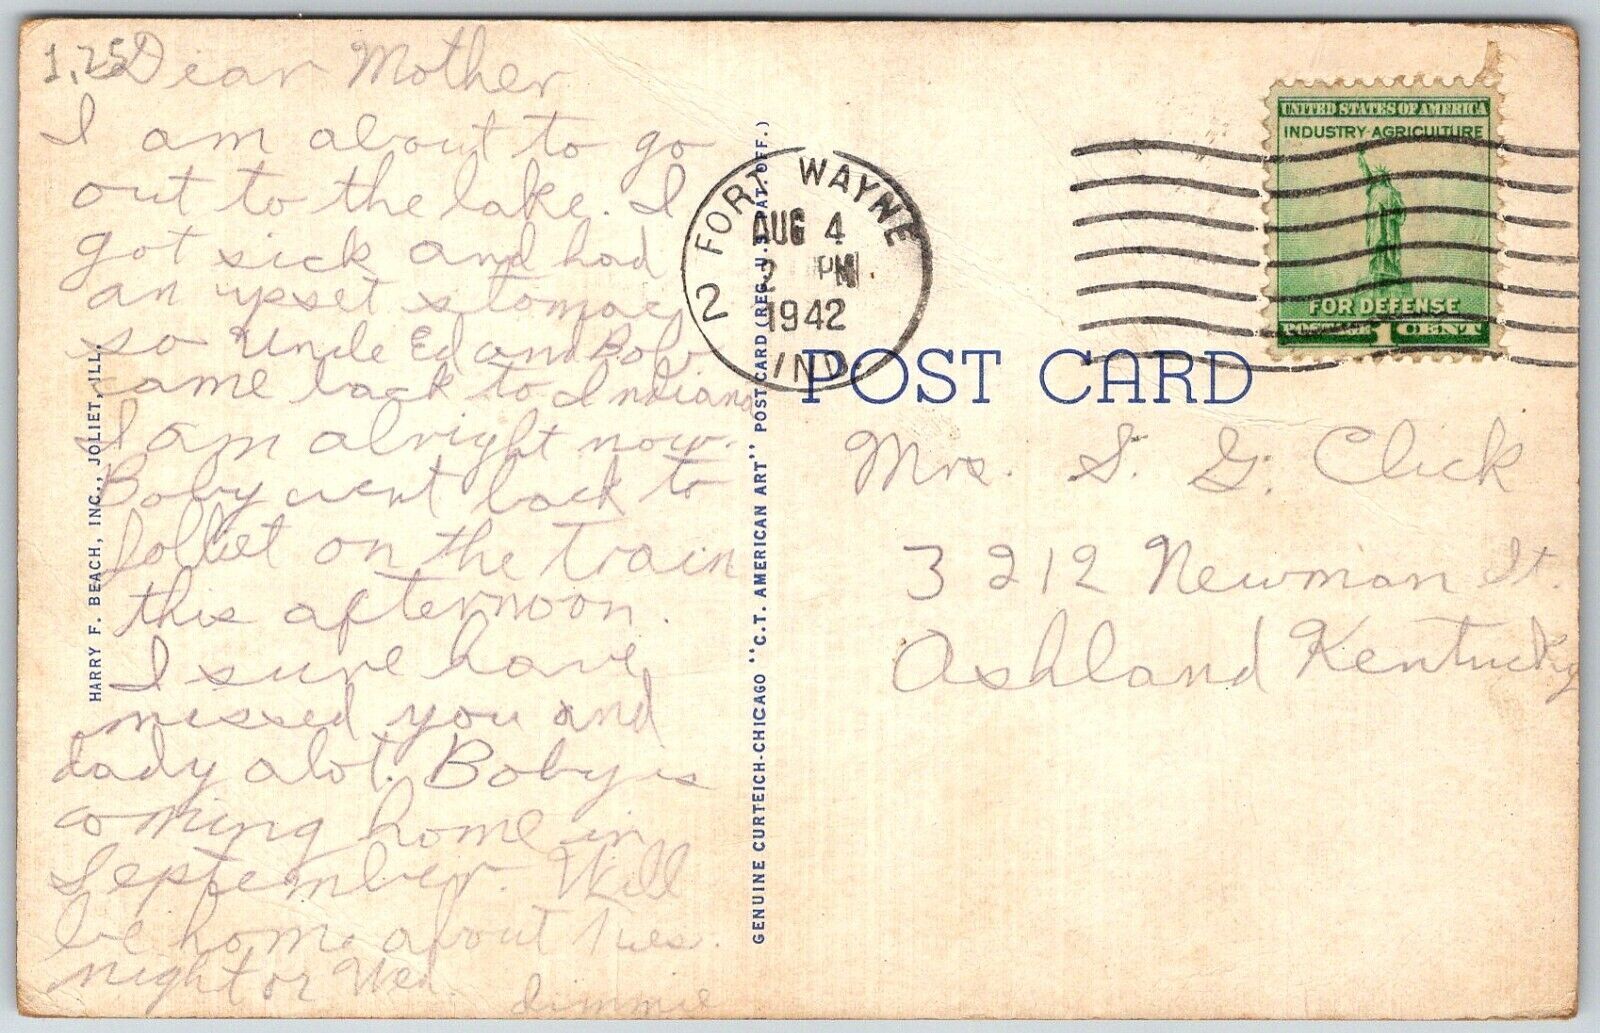 1.25
Dear Mother
I am about to go
out to the lake. I
got sick and had
an upset stomac
so Uncle Ed and Bob
came back to Indiana
I am alright now.
Boby went back to
Jolliet on the train
this afternoon.
I sure have
missed you and
dady alot. Boby is
coming home in
September. Will
be home about Tues.
night or Wed.
Jimmie
HARRY F. BEACH, INC., JOLIET, ILL.
GENUINE CURTEICH-CHICAGO "C.T. AMERICAN ART" POST CARD (REG. U.S. PAT. OFF.)
2 FORT WAYNE
AUG 4
2 PM
1942
IND.
UNITED STATES OF AMERICA
INDUSTRY-AGRICULTURE
FOR DEFENSE
POSTAGE 1 CENT
POST CARD
Mrs. S. G. Click
3212 Newman St.
Ashland Kentucky